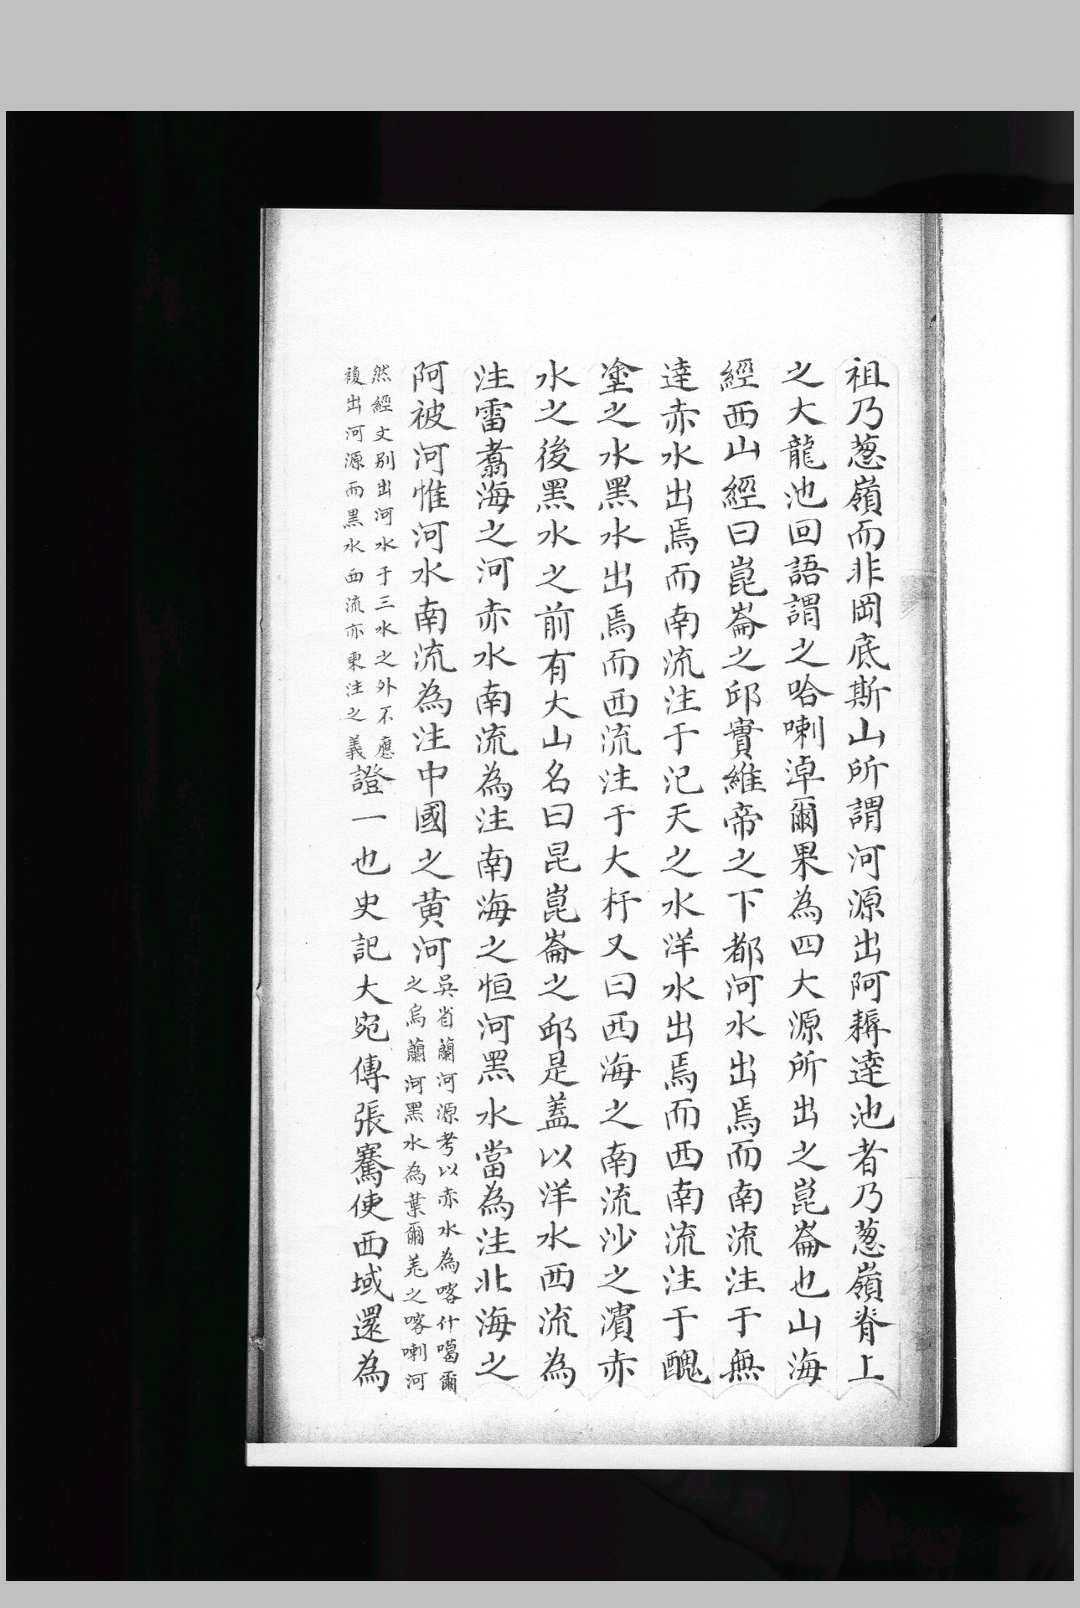 祖乃蔥嶺而非岡底斯山所謂河源出阿耨達池者乃蔥嶺脊上
之大龍池回語謂之哈喇淖爾果為四大源所出之崑崙也山海
經西山經曰崑崙之邱實維帝之下都河水出焉而南流注于無
達赤水出焉而南流注于汜天之水洋水出焉而西南流注于醜
塗之水黑水出焉而西流注于大杅又曰西海之南流沙之濱赤
水之後黑水之前有大山名曰昆崑崙之邱是蓋以洋水西流為
注雷翥海之河赤水南流為注南海之恒河黑水當為注北海之
阿被河惟河水南流為注中國之黃河吳省蘭河源考以赤水為喀什噶爾
之烏蘭河黑水為葉爾羌之喀喇河
然經文別出河水于三水之外不應
複出河源而黑水西流亦東注之義證一也史記大宛傳張騫使西域還為